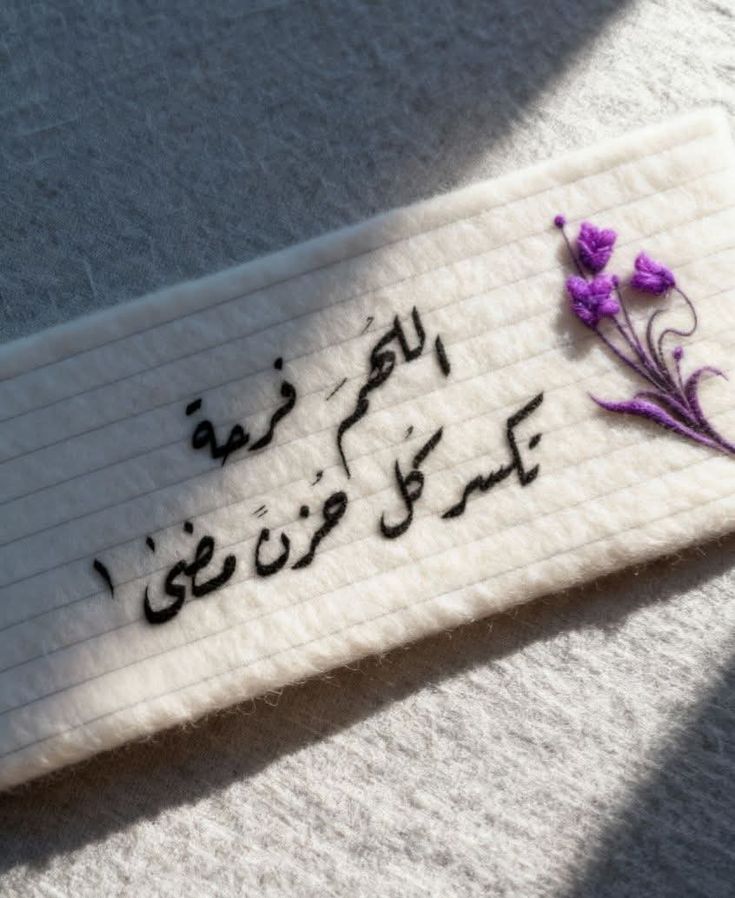 اللهُمَ فرحة
تكسر كُل حُزنً مضىٰ